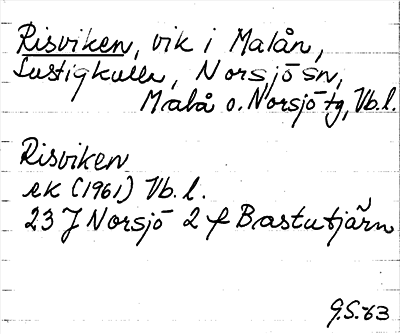 Risviken, vik i Malån,
Lustigkulla, Norsjö sn,
Malå o. Norsjö tg, Vb.l.
Risviken
ek (1961) Vb. l.
23 J Norsjö 2 f Bastutjärn
G.S.-63